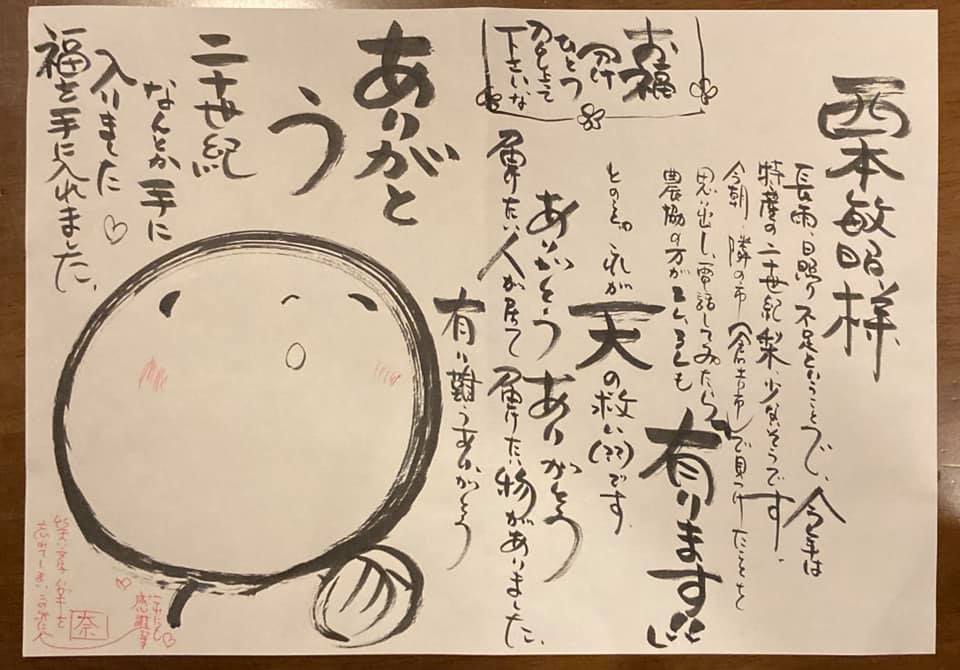 西本敏昭様
長雨、日照り不足ということで、今年は
特産の二十世紀梨、少ないそうです。
今朝、隣の市(倉吉市)で見つけたことを
思い出し、電話してみたら
農協の方が
有ります!!
とのこと。これが
天の救い(??)です。
ありがとう ありがとう
届けたい人が居て 届けたい物がありました。
有り難うありがとう
お福
分け
ひとつ
召し上って
下さいな
ありがと
う
二十世紀
なんとか手に
入りました♡
福を手に入れました。
忘れてしまい
奈